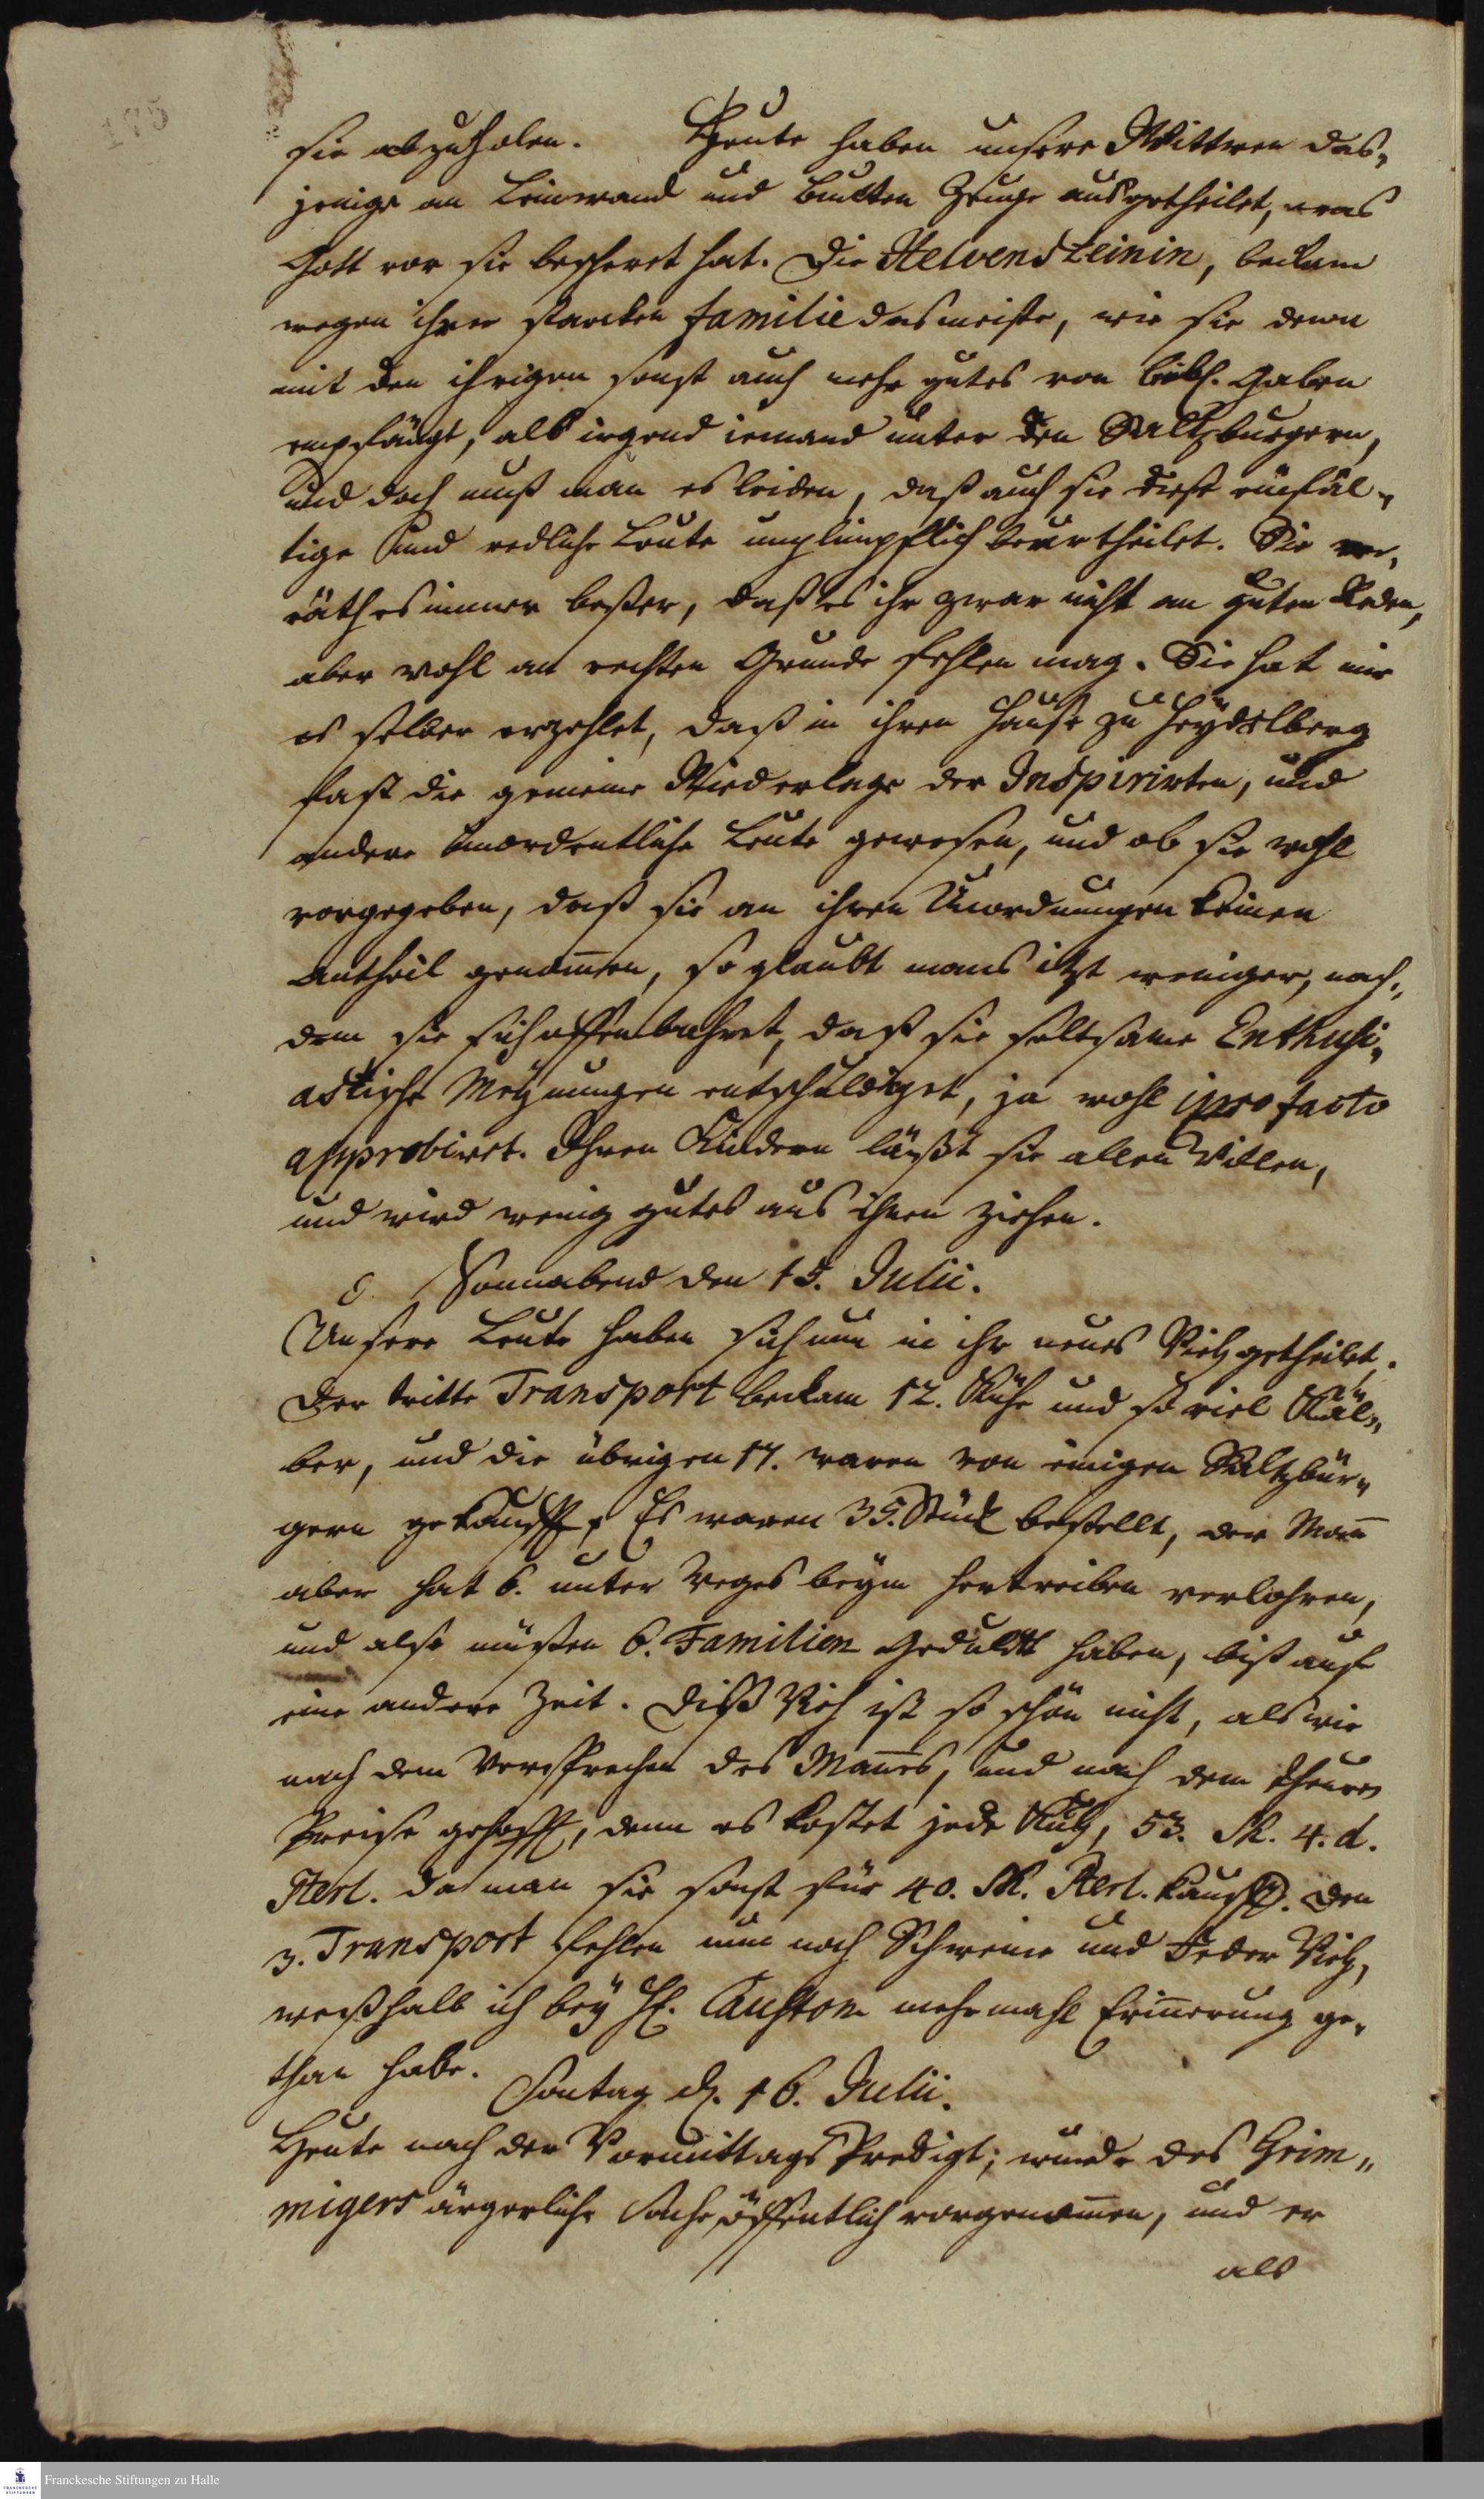 175
sie abzuholen. Heute haben unsere Wittwen das„
jenige an Leinwand und bunten Zeuge ausgetheilet, was
Gott vor sie bescheret hat. Die Helvensteinin, bekam
wegen ihrer starcken familie das meiste, wie sie denn
mit den ihrigen sonst auch mehr gutes von leibl. Gaben
empfängt, als irgend iemand unter den Saltzburgern,
und doch muß man es leiden, daß auch sie diese einfäl„
tige und redliche Leute unglimpflich beurtheilet. Sie ver„
räth es immer beßer, daß es ihr zwar nicht an guten Reden,
aber wohl an rechten Grunde fehlen mag. Sie hat mir
es selber erzehlet, daß in ihren Hause zu Heydelberg
fast die gemeine Niederlage der Inspirirten, und
andere unordentliche Leute gewesen, und ob sie wohl
vorgegeben, daß sie an ihren Unordnungen keinen
Antheil genom̅en, so glaubt mans itzt weniger, nach„
dem sie sich offenbahret, daß sie seltsame Enthusi„
astische Meynungen entschuldiget, ja wohl ipso facto
approbiret. Ihren Kindern läßt sie allen Willen,
und wird wenig gutes aus ihnen ziehen.
Sonnabend den 15. Julii.
Unsere Leute haben sich nun in ihr neues Vieh getheilet.
Der dritte Transport bekam 12. Kühe und so viel Käl„
ber, und die übrigen 17. waren von einigen Saltzbur„
gern gekaufft. Es waren 35. Stück bestellt, der Man̅
aber hat 6. unter Weges beym hertreiben verlohren,
und also müßen 6. Familien Gedult haben, biß auf
eine andere Zeit. Diß Vieh ist so schön nicht, als wir
nach dem Versprechen des Man̅es, und nach dem theuren
Preise gehofft, denn es kostet jede Kuh, 53. Sh. 4. d.
Sterl. da man sie sonst für 40. Sh. Sterl. kaufft. Den
3. Transport fehlen nun noch Schweine und Feder Vieh,
weßhalb ich bey H. Causton mehrmahl Erin̅erung ge„
than habe.
Sontag d. 16. Julii.
Heute nach der Vormittags Predigt; wurde des Grim„
migers ärgerliche Sache öffentlich vorgenom̅en, und er
als
Franckesche Stiftungen zu Halle